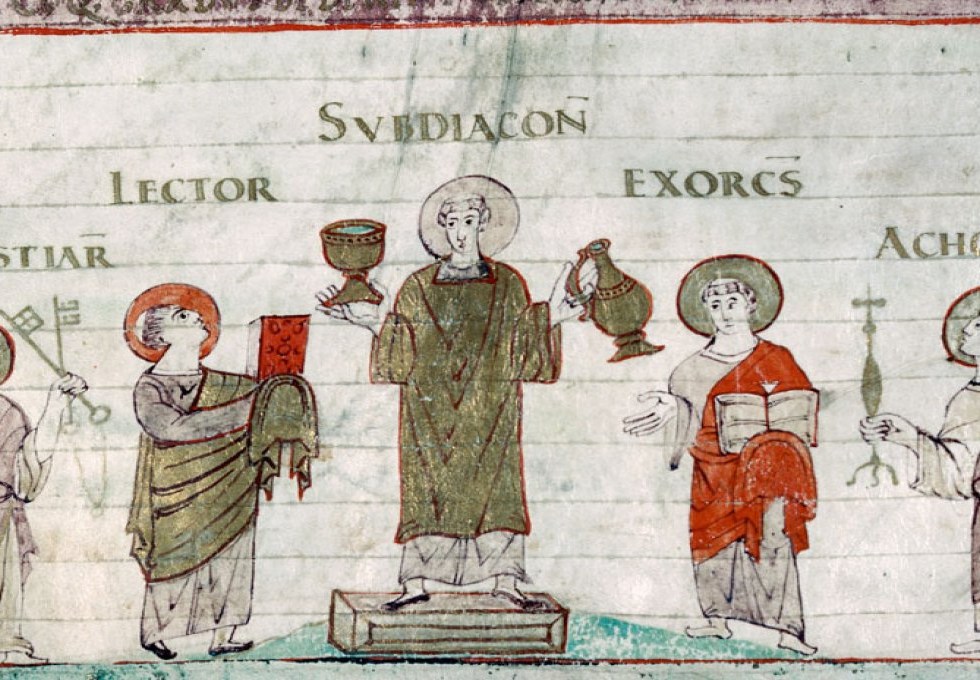 SVBDIACON̄
LECTOR
EXORCS̄
STIAR̄
ACHO